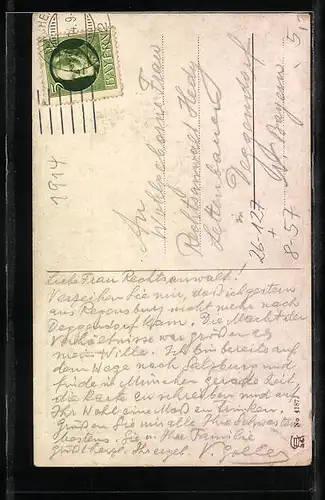 MÜNCHEN
BAYERN
5
1914
An
Wohlgeborne Frau
Rechtsanwalt Hedy
in
Deggendorf
Bayern
5,-
26-127
+
8-57
Liebe Frau Rechtsanwalt!
Verzeihen Sie mir, daß ich gestern
aus Regensburg nicht mehr nach
Deggendorf kam. Die Macht der
Verhältnisse war größer als
mein Wille. Ich bin bereits auf
dem Wege nach Salzburg und
finde in München gerade Zeit
die Karte zu schreiben und auf
Ihr Wohl eine Maß zu trinken.
Grüßen Sie mir alle Ihre Schwestern
bestens. Sie u. Ihre Familie
grüßt herzl. Ihr ergeb.
No 4187